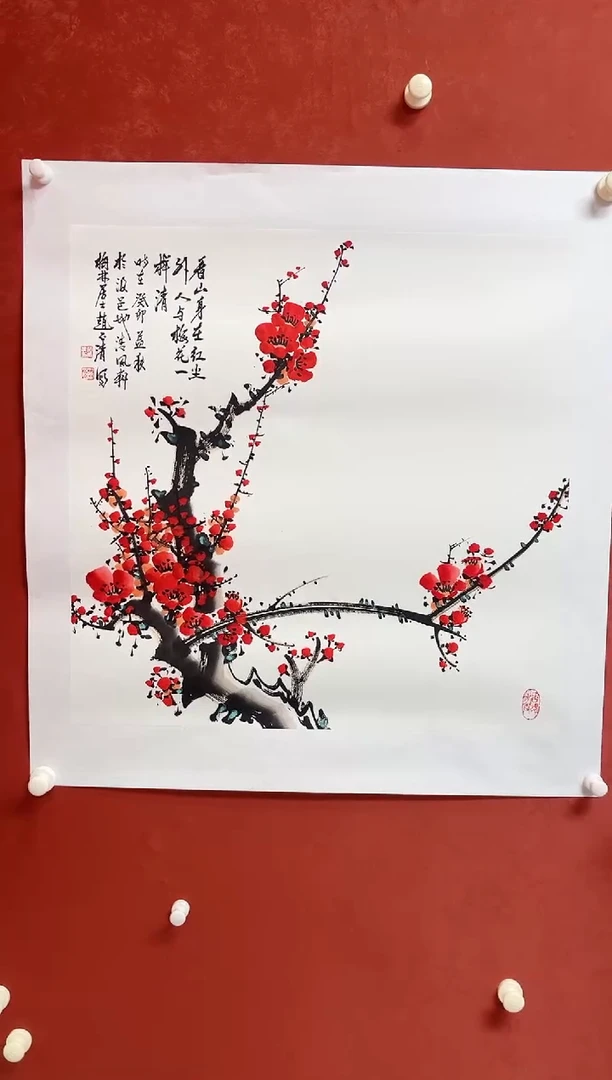 看山身在红尘
外人与梅花一
样清
时在癸卯益秋
於汲邑城清风轩
梅林居士赵
清写